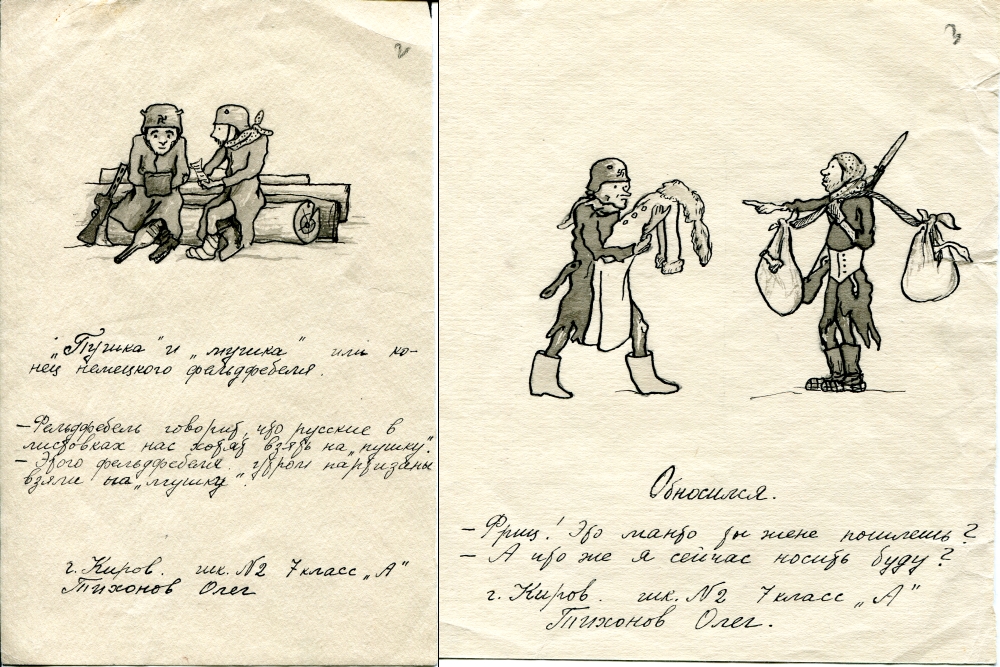 2
„Пушка" и „мушка" или ко-
нец немецкого фельдфебеля.
— Фельдфебель говорит, что русские в
листовках нас хотят взять на „пушку".
— Этого фельдфебеля утром партизаны
взяли на „мушку".
г. Киров. шк. №2 7 класс „А"
Тихонов Олег
3
Обносился.
— Фриц! Это манто ты жене пошлешь?
— А что же я сейчас носить буду?
г. Киров. шк. №2 7 класс „А"
Тихонов Олег.